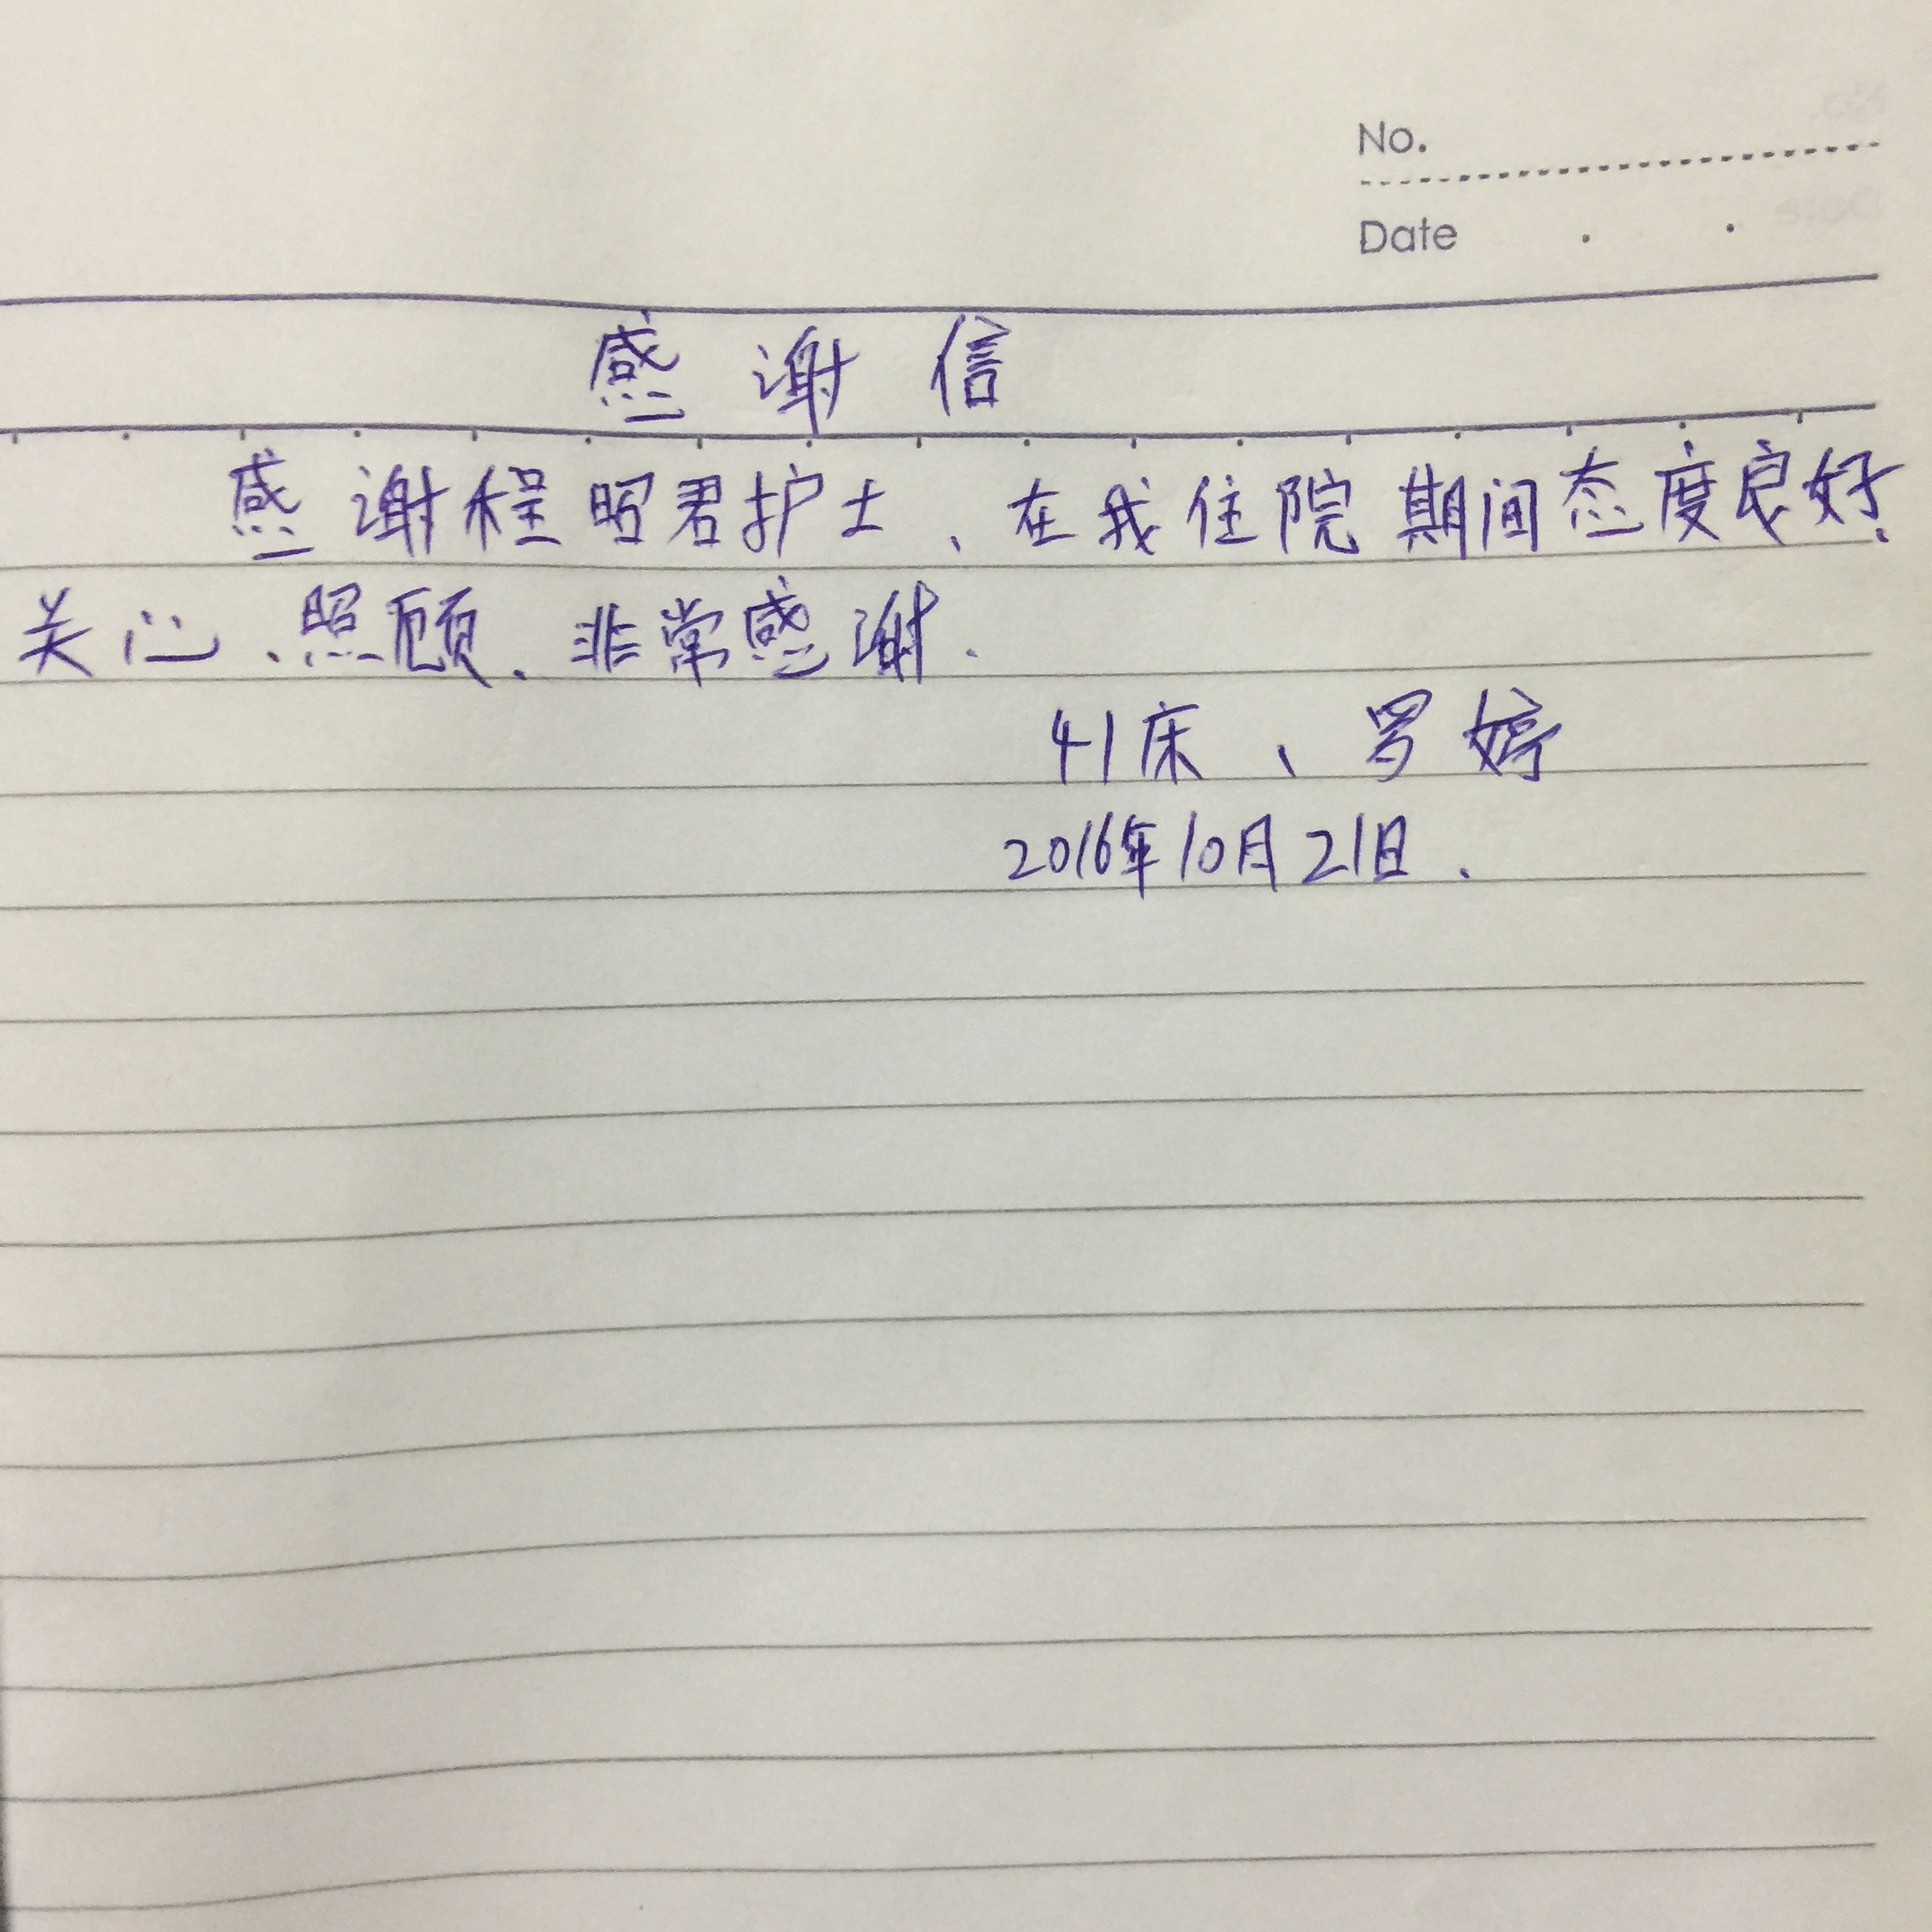 No.
Date . .
感谢信
感谢程昭君护士、在我住院期间态度良好、
关心、照顾、非常感谢.
41床、罗婷
2016年10月21日.